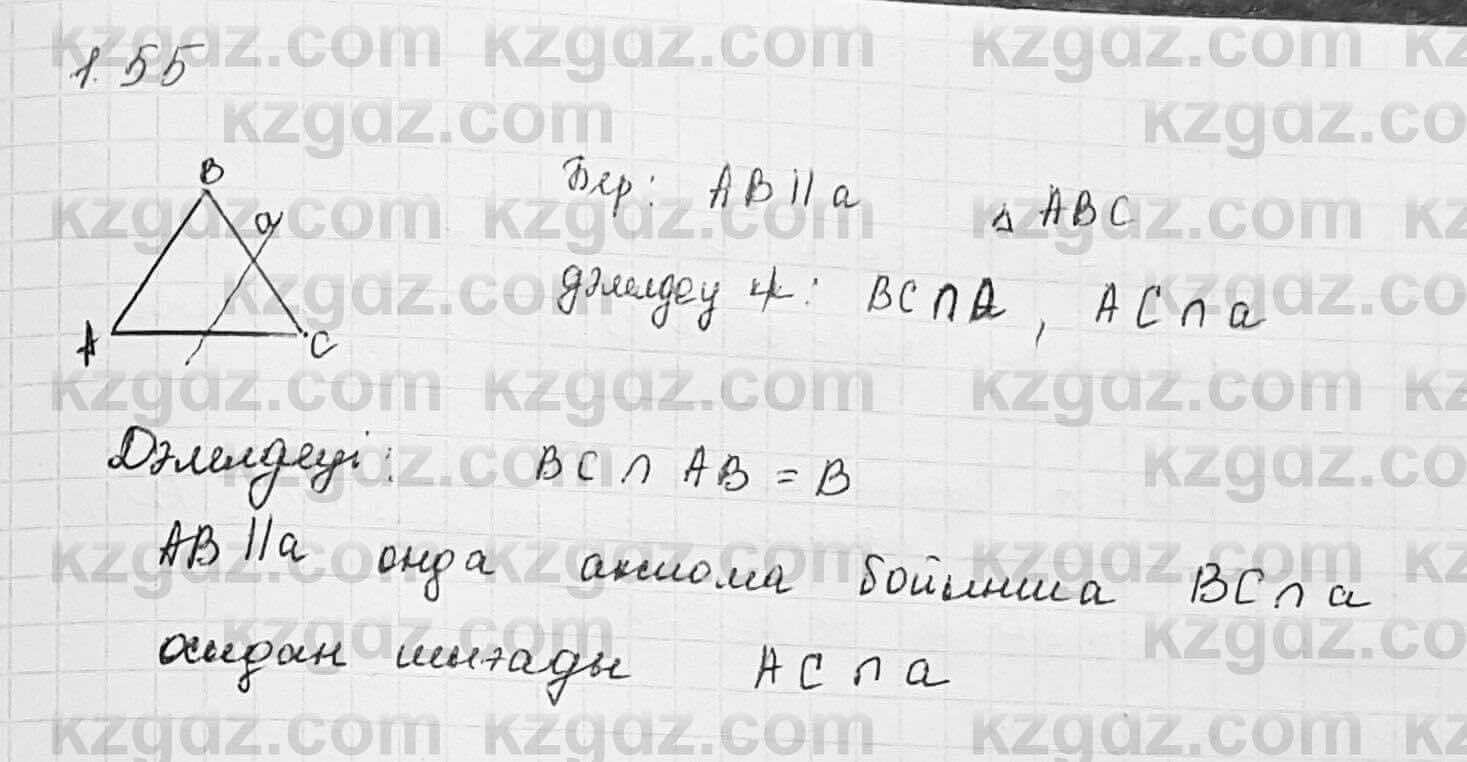 1.55
B
a
A
C
Бер: AB || a △ ABC
дәлелдеу к: BC ∩ a, AC ∩ a
Дәлелдеуі: BC ∩ AB = B
AB || a онда аксиома бойынша BC ∩ a
осыдан шығады AC ∩ a
kzgdz.com